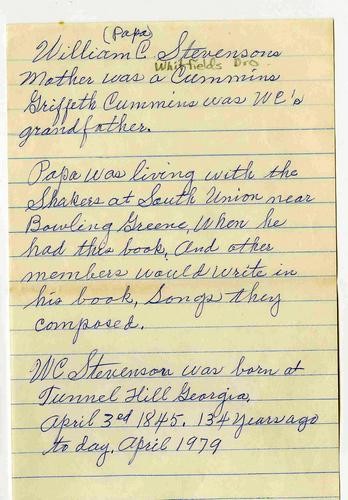 (Papa)
William C. Stevensons
Whitfields Dro
Mother was a Cummins
Griffeth Cummins was WC's
grandfather.
Papa was living with the
Shakers at South Union near
Bowling Greene, When he
had this book, And other
members would write in
his book, Songs they
composed.
WC Stevenson was born at
Tunnel Hill Georgia,
April 3ed 1845. 134 years ago
to day, April 1979